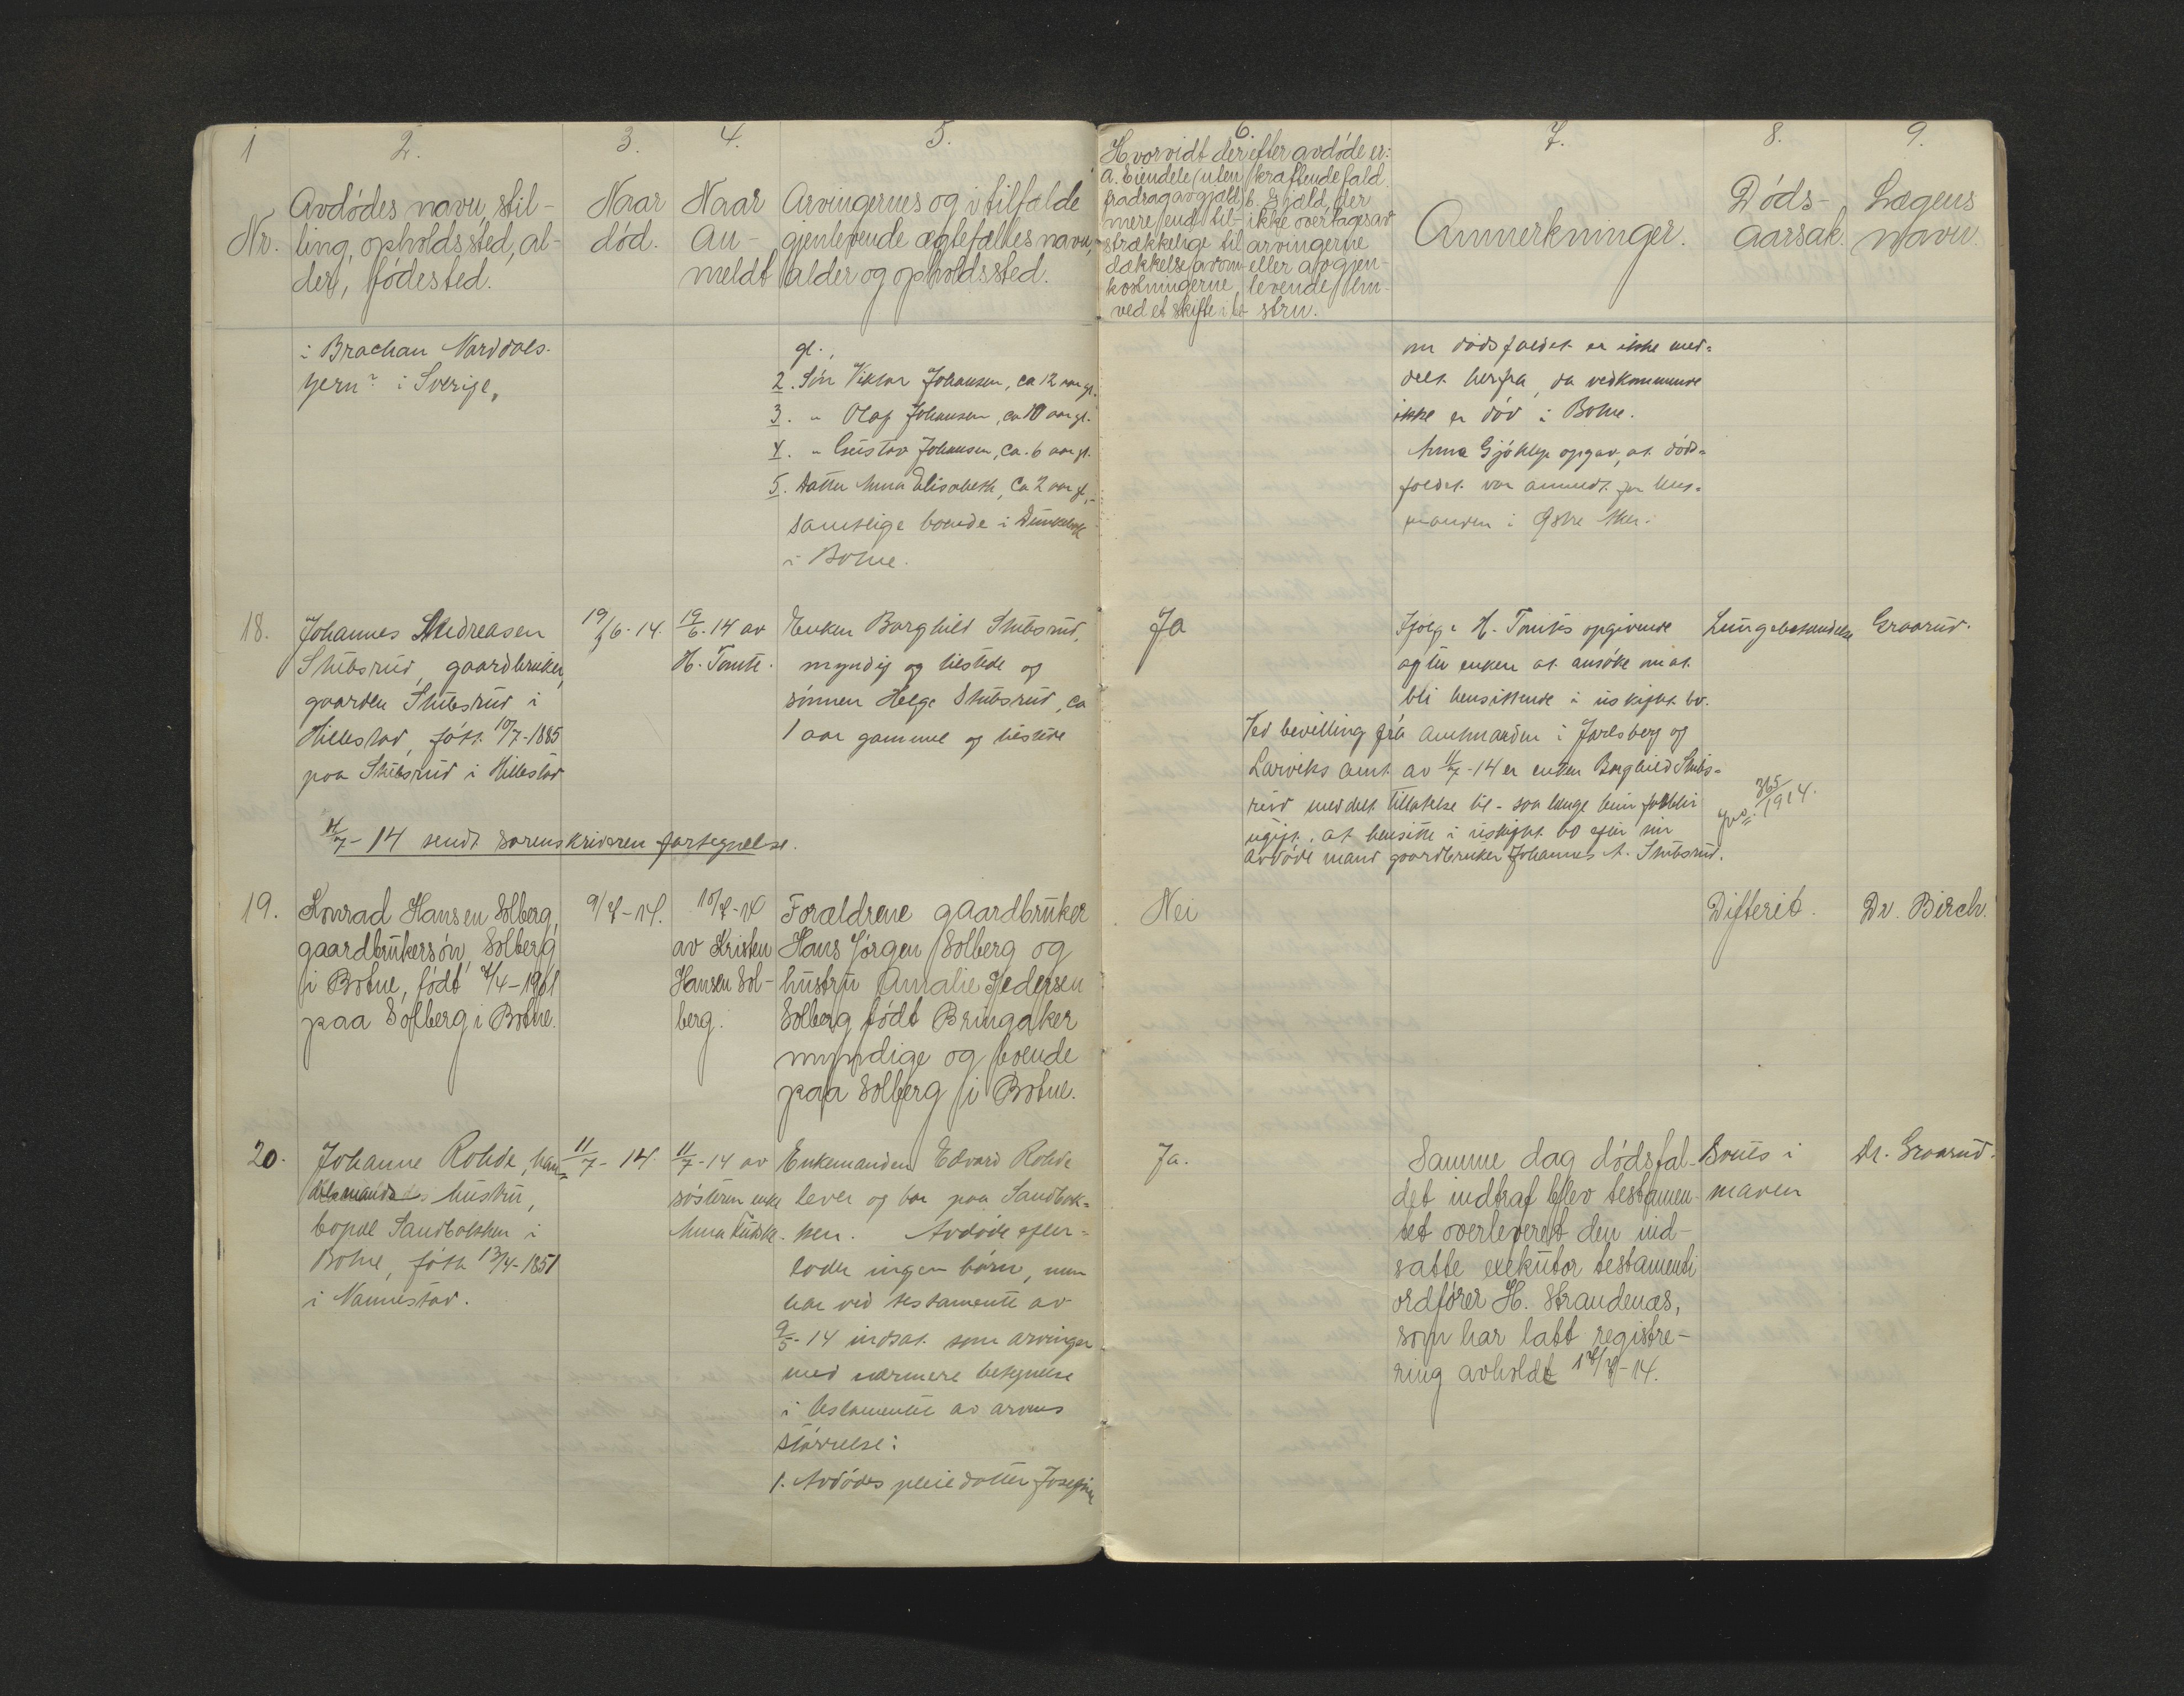 1
2.
3.
4.
5.
Nr.
Avdødes navn, stil-
ling, opholdssted, al-
der, fødested.
Naar
død.
Naar
an-
meldt
Arvingernes og i tilfælde
gjenlevende ægtefælles navn,
alder og opholdssted.
i Brachan Nord
i Sverige,
gl.,
2. Søn Viktor Johansen, ca 12 aar gl.
3. " Olaf Johansen, ca 10 aar gl.
4. " Gustav Johansen, ca. 6 aar gl.
5. Datter Anna Elisabeth, ca 2 aar gl,-
samtlige boende i
i Botne.
18.
Johannes Andreasen
Stubsrud, gaardbruker,
gaarden Stubsrud i
Hillestad, født 10/7-1885
paa Stubsrud i Hillestad
19/6-14.
19/6-14 av
H. Tomte.
Enken Borghild Stubsrud,
myndig og tilstede og
sønnen Helge Stubsrud, ca
1 aar gammel og tilstede
11/7-14 sendt sorenskriveren fortegnelse.
19.
Konrad Hansen Solberg,
gaardbrukersøn, Solberg
i Botne, født 4/4-1901
paa Solberg i Botne.
9/7-14.
10/7-14
av Kristen
Hansen Sol-
berg.
Forældrene gaardbruker
Hans Jørgen Solberg og
hustru Amalie Pedersen
Solberg født Bringaker
myndige og boende
paa Solberg i Botne.
20.
Johanne Rohde, han-
delsmands hustru,
bopæl Sandbakken i
Botne, født 13/4-1851
i Nannestad.
11/7-14.
11/7-14 av
søsteren enke
Anna
Enkemanden Edvard Rohde
lever og bor paa Sandbak-
ken. Avdøde efter-
lode ingen børn, men
har ved testamente av
9/5-14 indsat som arvinger
med nærmere betegnelse
i testamentet av arvens
størrelse:
1. Avdødes pleiedatter Josefine
6.
7.
8.
9.
Hvorvidt der efter avdøde er:
a. Eiendele (uten
fradrag av gjæld)
mere end til-
strækkelige til
dækkelse av om-
kostningerne
ved et skifte i be-
kræftende fald
b. Gjæld, der
ikke overtages av
arvingerne
eller av gjen-
levende hu-
stru.
Anmerkninger.
Døds-
aarsak.
Lægens
navn.
om dødsfaldet er ikke med-
delt herfra, da vedkommende
ikke er død i Botne.
Anna opgav, at døds-
faldet var anmeldt for lens-
manden i
Ja
Ifølge H. Tomtes opgivende
agter enken at ansøke om at
bli hensittende i uskiftet bo.
Ved bevilling fra amtmanden i Jarlsberg og
Larviks amt av 11/7-14 er enken Borghild Stubs-
rud meddelt tillatelse til - saa længe hun forblir
ugift, at hensitte i uskiftet bo efter sin
avdøde mand gaardbruker Johannes A. Stubsrud.
365/1914.
Lungebetændelse
Graarud.
Nei
Difterit.
Dr. Birch.
Ja.
Samme dag dødsfal-
det indtraf blev testamen-
tet overleveret den ind-
satte exekutor testamenti
ordfører H. Strandenæs,
som har latt registre-
ring avholdt 18/7-14.
i
maven
Dr. Graarud.